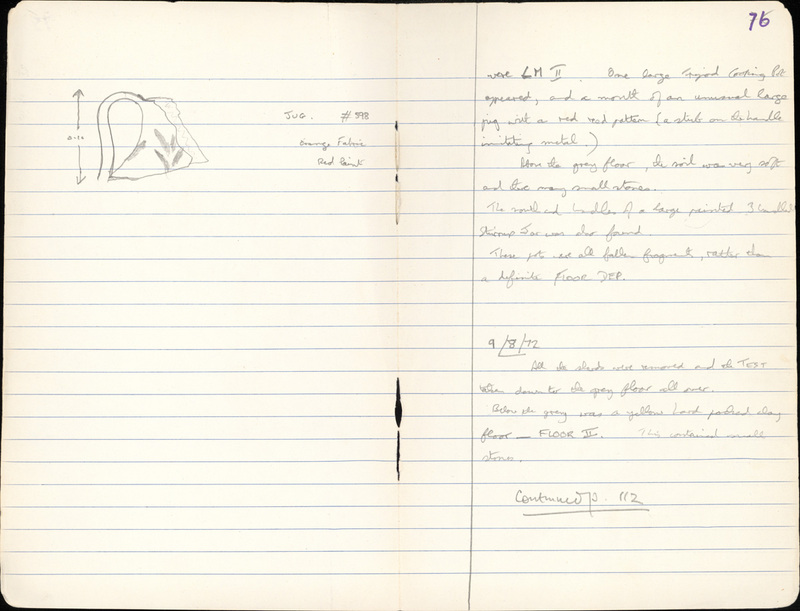 JUG. #598
Orange Fabric
Red Paint
0.10
76
were LM II. One large Tripod Cooking Pot
appeared, and a mouth of an unusual large
jug with a red rod pattern (a stub on the handle
imitating metal.)
Above the grey floor, the soil was very soft
and the many small stones.
The mouth and handles of a large painted 3 handled
Stirrup Jar was also found.
These pots are all fallen fragments, rather than
a definite FLOOR DEP.
9/8/72
All the sherds were removed and the TEST
taken down to the grey floor all over.
Below the grey was a yellow hard packed clay
floor — FLOOR II. This contained small
stones.
Continued p. 112